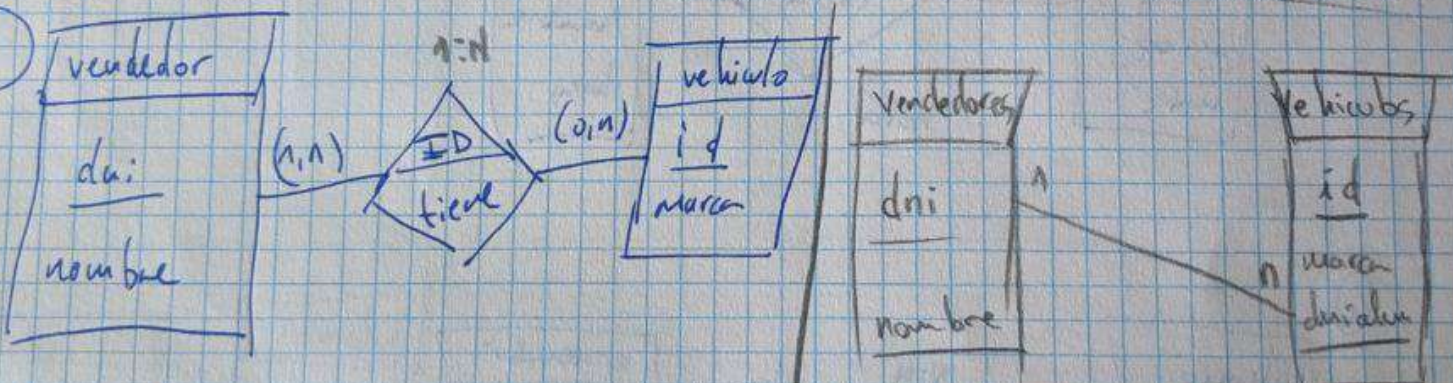 vendedor
dni
nombre
(1,1)
1:N
ID
tiene
(0,n)
vehiculo
id
marca
Vendedores
dni
nombre
1
n
Vehiculos
id
marca
dnialum